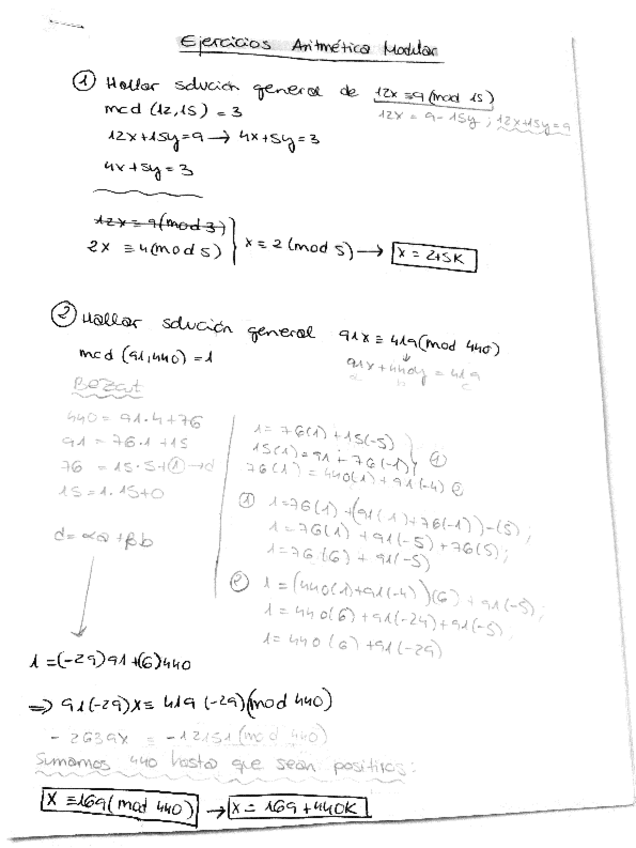 Ejercicios Aritmética Modular
① Hallar solución general de 12x ≡ 9 (mod 15)
mcd (12,15) = 3
12x = 9 - 15y ; 12x+15y=9
12x+15y=9 → 4x+5y=3
4x+5y=3
12x ≡ 9 (mod 3)
2x ≡ 4 (mod 5) } x ≡ 2 (mod 5) → x = 2+5K
② Hallar solución general 91x ≡ 419 (mod 440)
mcd (91,440) = 1
91x + 440y = 419
a b c
Bezout
440 = 91·4+76
91 = 76·1+15
76 = 15·5+① → d
15 = 1·15+0
d = αa + βb
1 = 76(1) + 15(-5)
15(1) = 91 + 76(-1) } ①
76(1) = 440(1) + 91(-4) ②
① 1 = 76(1) + (91(1) + 76(-1))-(5);
1 = 76(1) + 91(-5) + 76(5);
1 = 76(6) + 91(-5)
② 1 = (440(1) + 91(-4))(6) + 91(-5);
1 = 440(6) + 91(-24) + 91(-5);
1 = 440(6) + 91(-29)
1 = (-29)91 + (6)440
⇒ 91(-29)x ≡ 419 (-29) (mod 440)
- 2639x ≡ -12151 (mod 440)
Sumamos 440 hasta que sean positivos:
x ≡ 169 (mod 440) → x = 169 + 440K